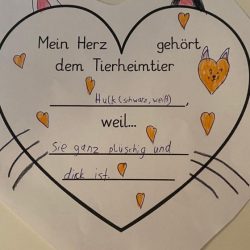 Mein Herz gehört
dem Tierheimtier
Hulk (schwarz, weiß),
weil...
Sie ganz pluschig und
dick ist.